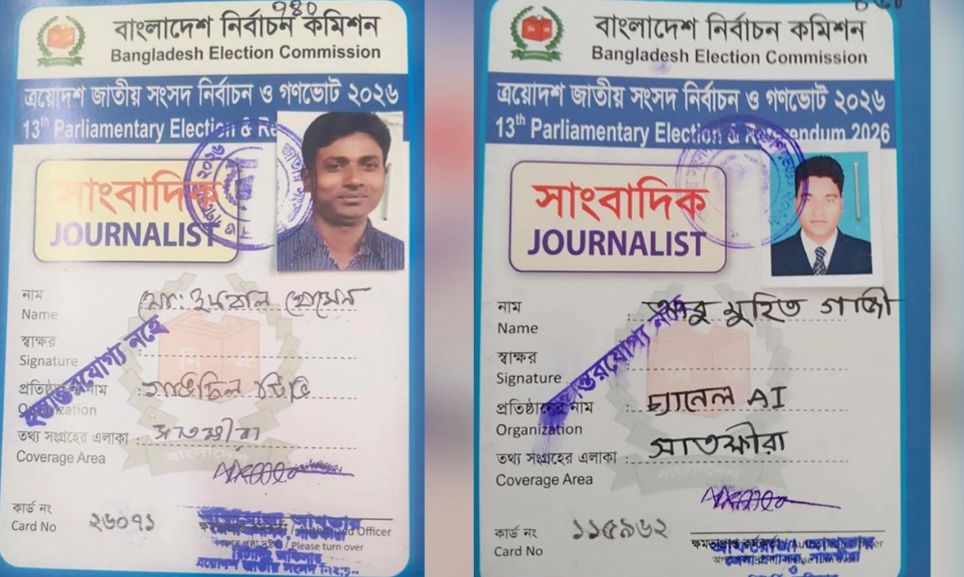 ৭৪০
বাংলাদেশ নির্বাচন কমিশন
Bangladesh Election Commission
ত্রয়োদশ জাতীয় সংসদ নির্বাচন ও গণভোট ২০২৬
13th Parliamentary Election &
সাংবাদিক
JOURNALIST
নাম
Name
মো: ইকবাল হোসেন
স্বাক্ষর
Signature
হস্তান্তরযোগ্য নহে
প্রতিষ্ঠানের নাম
Organization
তথ্য সংগ্রহের এলাকা :
Coverage Area
সাতক্ষীরা
কার্ড নং
Card No
২৬০৭১
/ Please turn over
ত্রয়োদশ জাতীয় সংসদ
বাংলাদেশ নির্বাচন কমিশন
Bangladesh Election Commission
ত্রয়োদশ জাতীয় সংসদ নির্বাচন ও গণভোট ২০২৬
13th Parliamentary Election & Referendum 2026
সাংবাদিক
JOURNALIST
নাম
Name
আবু মুহিত গাজী
স্বাক্ষর
Signature
হস্তান্তরযোগ্য নহে
প্রতিষ্ঠানের নাম :
Organization
চ্যানেল AI
তথ্য সংগ্রহের এলাকা :
Coverage Area
সাতক্ষীরা
কার্ড নং
Card No
১১৫৯৬২